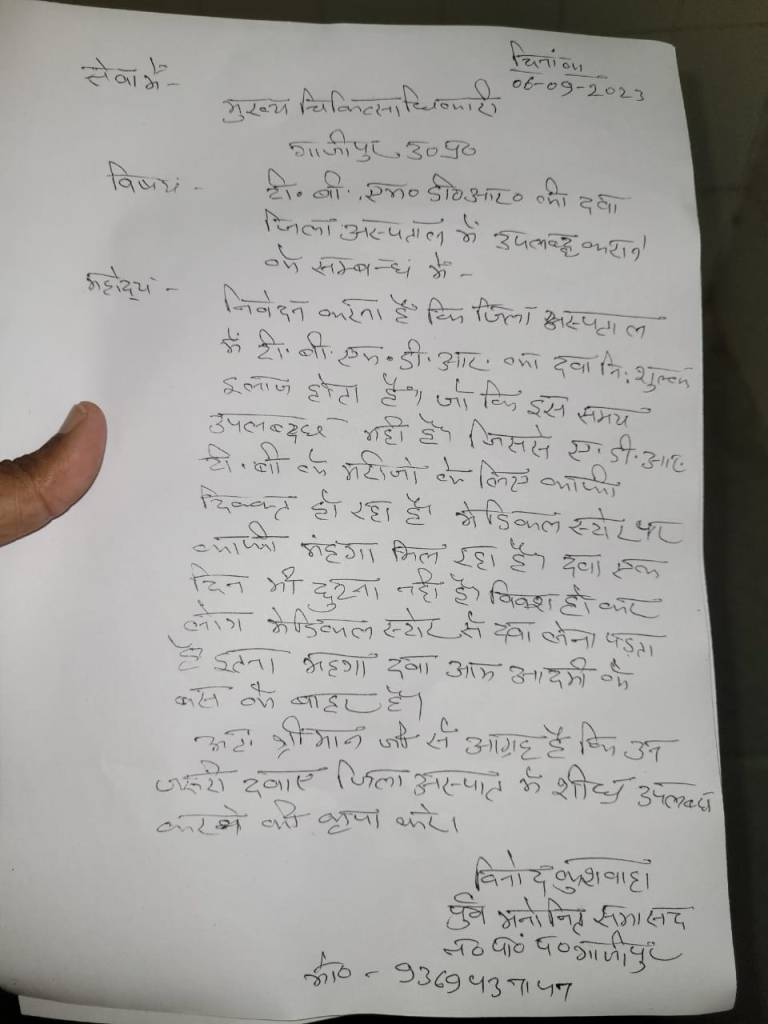 सेवा में -
दिनांक
06-09-2023
मुख्य चिकित्साधिकारी
गाजीपुर उ०प्र०
विषय -
टी. बी. एम० डी०आर० की दवा
जिला अस्पताल में उपलब्द्ध कराने
के सम्बन्ध में -
महोदय -
निवेदन करना है कि जिला अस्पताल
में टी. बी. एम. डी. आर. का दवा नि:शुल्क
इलाज होता है। जो कि इस समय
उपलब्द्ध नही है। जिससे एम. डी. आर.
टी. बी के मरीजो के लिए काफी
दिक्कत हो रहा है। मेडिकल स्टोर पर
काफी मंहगा मिल रहा है। दवा एक
दिन भी छुटना नही है। विवश हो कर
लोग मेडिकल स्टोर से दवा लेना पड़ता
है इतना महगा दवा आम आदमी के
बस के बाहर है।
अतः श्रीमान जी से आग्रह है कि उन
जरूरी दवाए जिला अस्पात में शीघ्र उपलब्ध
करने की कृपा करे।
विनोद कुशवाहा
पुर्व मनोनित सभासद
न० पा० प० गाजीपुर
मो० - 9369437147